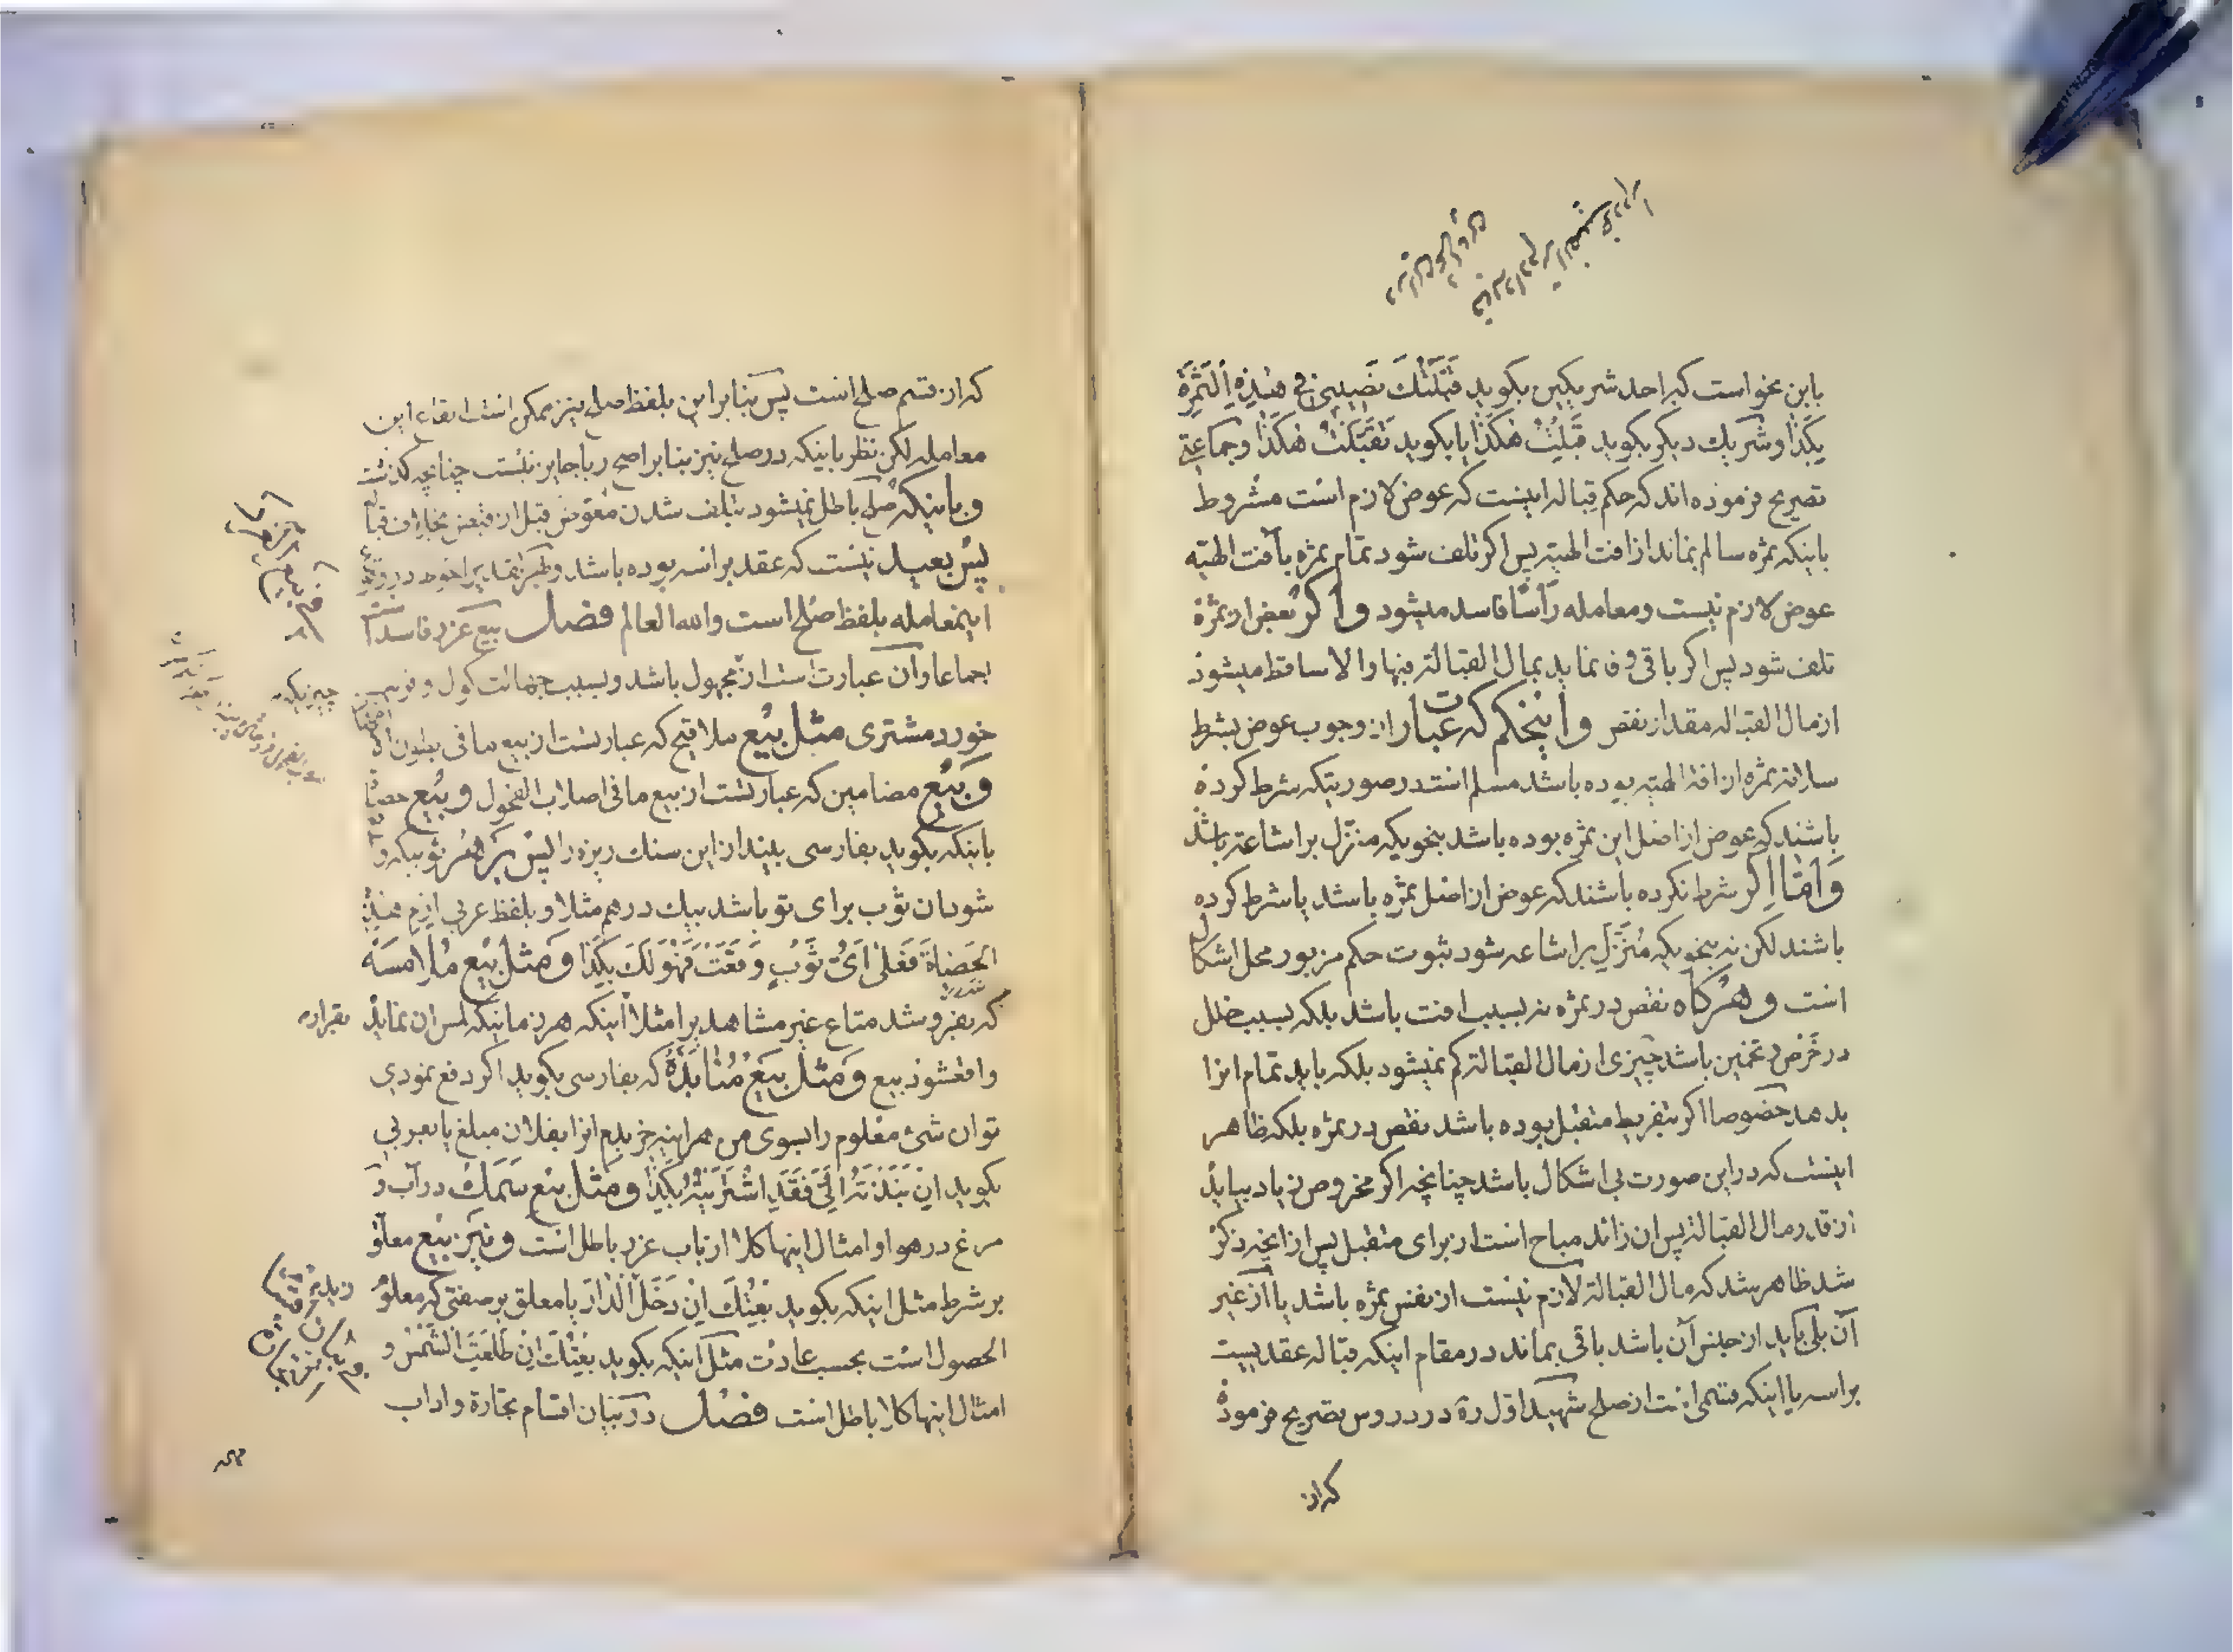 باین نحو است که احد شریکین بگوید قَبَّلْتُكَ نَصیبی فی هٰذِهِ الثَّمَرَةِ
بِکَذا و شریك دیگر بگوید قَبِلْتُ هٰکَذا یا بگوید تَقَبَّلْتُ هٰکَذا و جماعتی
تصریح فرموده اند که حکم قباله اینست که عوض لازم است مشروط
باینکه ثمره سالم بماند از افت الهیّه پس اگر تلف شود تمام ثمره بآفت الهیّه
عوض لازم نیست و معامله رأسًا فاسد میشود و اگر بعض از ثمره
تلف شود پس اگر باقی وفا نماید بمال القبالة فبها و الا ساقط میشود
از مال القباله مقدار نقص و اینحکم که عبارت از وجوب عوض بشرط
سلامة ثمره از افة الهیّه بوده باشد مسلم است در صورتیکه شرط کرده
باشند که عوض از اصل این ثمره بوده باشد بنحویکه منزّل بر اشاعه باشد
وَ امّا اگر شرط نکرده باشند که عوض از اصل ثمره باشد یا شرط کرده
باشند لکن نه بنحویکه مُنَزَّل بر اشاعه شود ثبوت حکم مزبور محل اشکال
است و هرگاه نقص در ثمره نه بسبب افت باشد بلکه بسبب خلل
در خَرْص و تخمین باشد چیزی از مال القبالة کم نمیشود بلکه باید تمام انرا
بدهد خصوصا اگر بتفریط متقبل بوده باشد نقص در ثمره بلکه ظاهر
اینست که در این صورت بی اشکال باشد چنانچه اگر مخروص زیاد بیاید
از قدر مال القبالة پس ان زائد مباح است از برای متقبل پس از انچه ذکر
شد ظاهر شد که مال القبالة لازم نیست از نفس ثمره باشد یا از غیر
آن بلی باید از جنس آن باشد باقی بماند در مقام اینکه قباله عقدیست
براسه یا اینکه قسمی است از صلح شهید اول ره در دروس تصریح فرموده
که از
که از قسم صلح است پس بنابر این بلفظ صلح نیز ممکن است ایقاع این
معامله لکن نظر باینکه در صلح نیز بنابر اصح ربا جایز نیست چنانچه گذشت
و باینکه صلح باطل نمیشود بتلف شدن معوّض قبل از قبض بخلاف قباله
پس بعید نیست که عقد براسه بوده باشد و احوط در
اینمعامله بلفظ صلح است والله العالم فصل بیع غرر فاسد است
اجماعا و آن عبارت است از مجهول باشد و بسبب جهالت گول و فریب
خورد مشتری مثل بیع ملاقیح که عبارتست از بیع ما فی بطون
و بیع مضامین که عبارتست از بیع ما فی اصلاب الفحول و بیع حصاة
باینکه بگوید بفارسی بیندار این سنك ریزه را پس بر هر ثوبیکه وا
شود ان ثوب برای تو باشد بیك درهم مثلا و بلفظ عربی اِرْمِ هٰذِهِ
الحَصاةَ فَعَلی اَیِّ ثَوْبٍ وَقَعَتْ فَهُوَ لَكَ بِکَذا وَ مثل بَیع مُلامَسَه
که بفروشد متاع غیر مشاهد برا مثلا اینکه هر زمانیکه لمس ان نماید
واقع شود بیع وَ مثل بَیع مُنابَذَه که بفارسی بگوید اگر دفع نمودی
تو ان شئ معلوم را بسوی من هراینه خریدم انرا بفلان مبلغ یا بعربی
بگوید اِنْ نَبَذْتَهُ اِلَیَّ فَقَدِ اشْتَرَیْتُهُ بِکَذا و مثل بیع سَمَك در آب و
مرغ در هوا و امثال اینها کلا از باب غرر باطل است و نیز بیع معلّق
بر شرط مثل اینکه بگوید بَعْتُكَ اِنْ دَخَلَ الدّارَ یا معلق بر صفتی که معلوم
الحصول است بحسب عادت مثل اینکه بگوید بِعْتُكَ اِنْ طَلَعَتِ الشَّمْس و
امثال اینها کلا باطل است فصل در بیان اقسام تجارة و اداب
چیزیکه